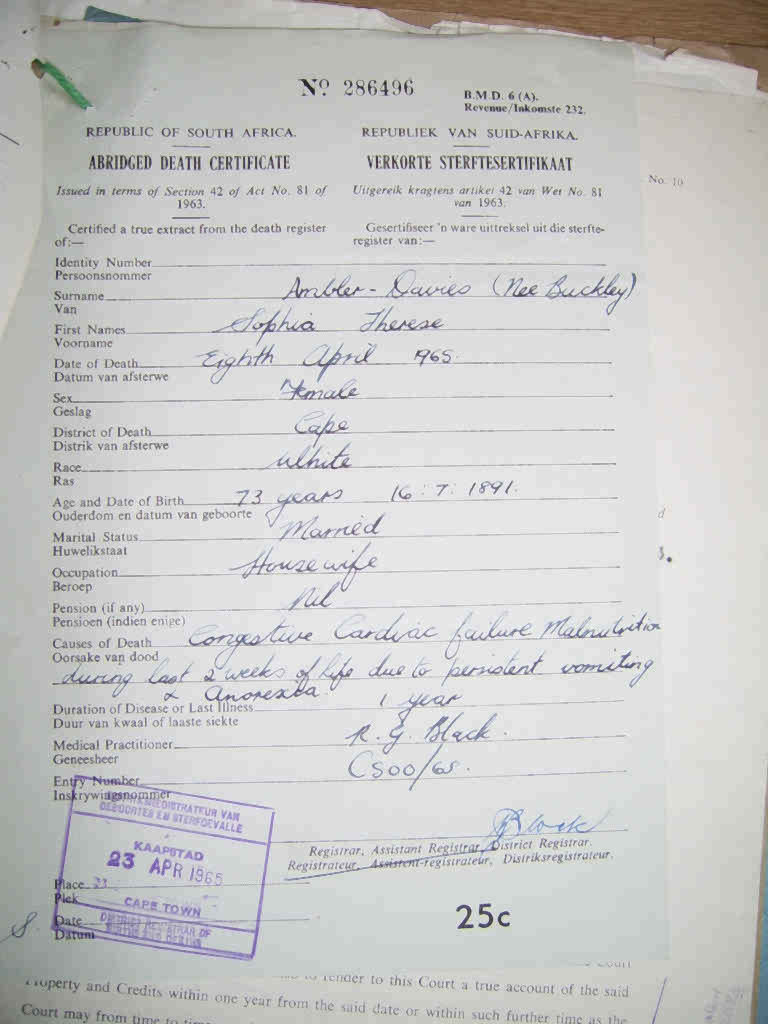 No 286496
B.M.D. 6 (A).
Revenue/Inkomste 232.
REPUBLIC OF SOUTH AFRICA.
ABRIDGED DEATH CERTIFICATE
Issued in terms of Section 42 of Act No. 81 of
1963.
Certified a true extract from the death register
of:—
REPUBLIEK VAN SUID-AFRIKA.
VERKORTE STERFTESERTIFIKAAT
Uitgereik kragtens artikel 42 van Wet No. 81
van 1963.
Gesertifiseer 'n ware uittreksel uit die sterfte-
register van:—
No. 10
Identity Number
Persoonsnommer
Surname Ambler-Davies (Nee Buckley)
Van
First Names Sophia Therese
Voorname
Date of Death Eighth April 1965.
Datum van afsterwe
Sex Female
Geslag
District of Death Cape
Distrik van afsterwe
Race White
Ras
Age and Date of Birth 73 years 16:7:1891.
Ouderdom en datum van geboorte
Marital Status Married
Huwelikstaat
Occupation Housewife
Beroep
Pension (if any) Nil
Pensioen (indien enige)
Causes of Death Congestive Cardiac failure Malnutrition
Oorsake van dood
during last 2 weeks of life due to persistent vomiting
& Anorexia.
Duration of Disease or Last Illness 1 year
Duur van kwaal of laaste siekte
Medical Practitioner R. G. Black.
Geneesheer
Entry Number C500/65.
Inskrywingsnommer
Registrar, Assistant Registrar, District Registrar.
Registrateur, Assistent-registrateur, Distriksregistrateur.
GEBOORTES EN STERFGEVALLE
KAAPSTAD
23 APR 1965
CAPE TOWN
DISTRICT REGISTRAR OF
BIRTHS AND DEATHS
Place
Plek
Date
Datum
25c
to render to this Court a true account of the said
Property and Credits within one year from the said date or within such further time as the
Court may from time to